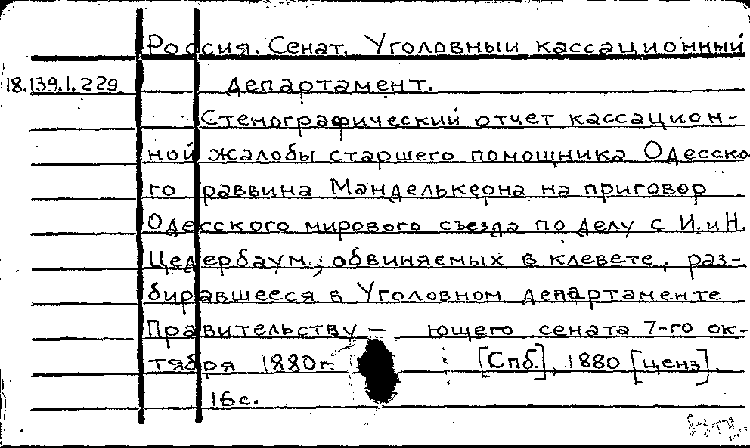 Россия. Сенат. Уголовный кассационный
18.139.1.229. департамент.
Стенографический отчет кассацион-
ной жалобы старшего помощника Одесско
го раввина Манделькерна на приговор
Одесского мирового съезда по делу с И. и Н.
Цедербаум, обвиняемых в клевете, раз-
биравшееся в Уголовном департаменте
Правительству – ющего сената 7-го ок-
тября 1880г. [Спб.], 1880 [ценз]
16 с.